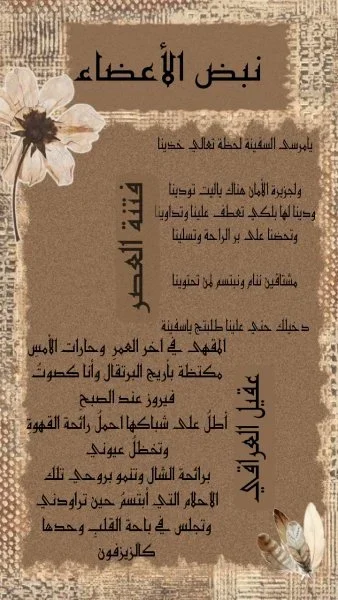 نبض الأعضاء
يامرسى السفينة لحظة تعالي خدينا
ولجزيرة الأمان هناك ياليت تودينا
ودينا لها بلكي تعطف علينا وتداوينا
وتحضنا على بر الراحة وتسلينا
مشتاقين ننام ونبتسم لمن تحتوينا
دخيلك حني علينا طلبتج ياسفينة
فتنة العصر
المقهى في آخر العمر وحارات الأمس
مكتظة بأريج البرتقال وأنا كصوت
فيروز عند الصبح
أطل على شباكها احمل رائحة القهوة
وتخظل عيوني
برائحة الشال وتنمو بروحي تلك
الاحلام التي أبتسم حين تراودني
وتجلس في باحة القلب وحدها
كالزيزفون
عقيل العراقي